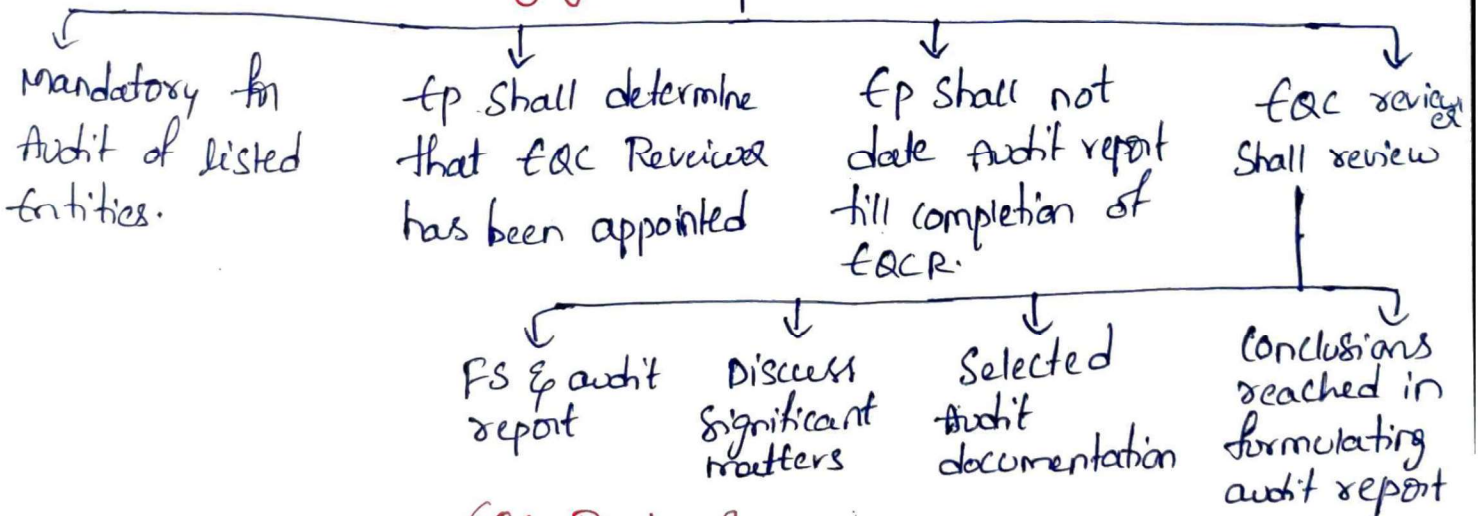 Mandatory for
Audit of listed
Entities.
Ep shall determine
that EQC Reveiwer
has been appointed
Ep shall not
date Audit report
till completion of
EQCR.
EQC reviewer
shall review
FS & audit
report
Discuss
significant
matters
Selected
Audit
documentation
Conclusions
reached in
formulating
audit report